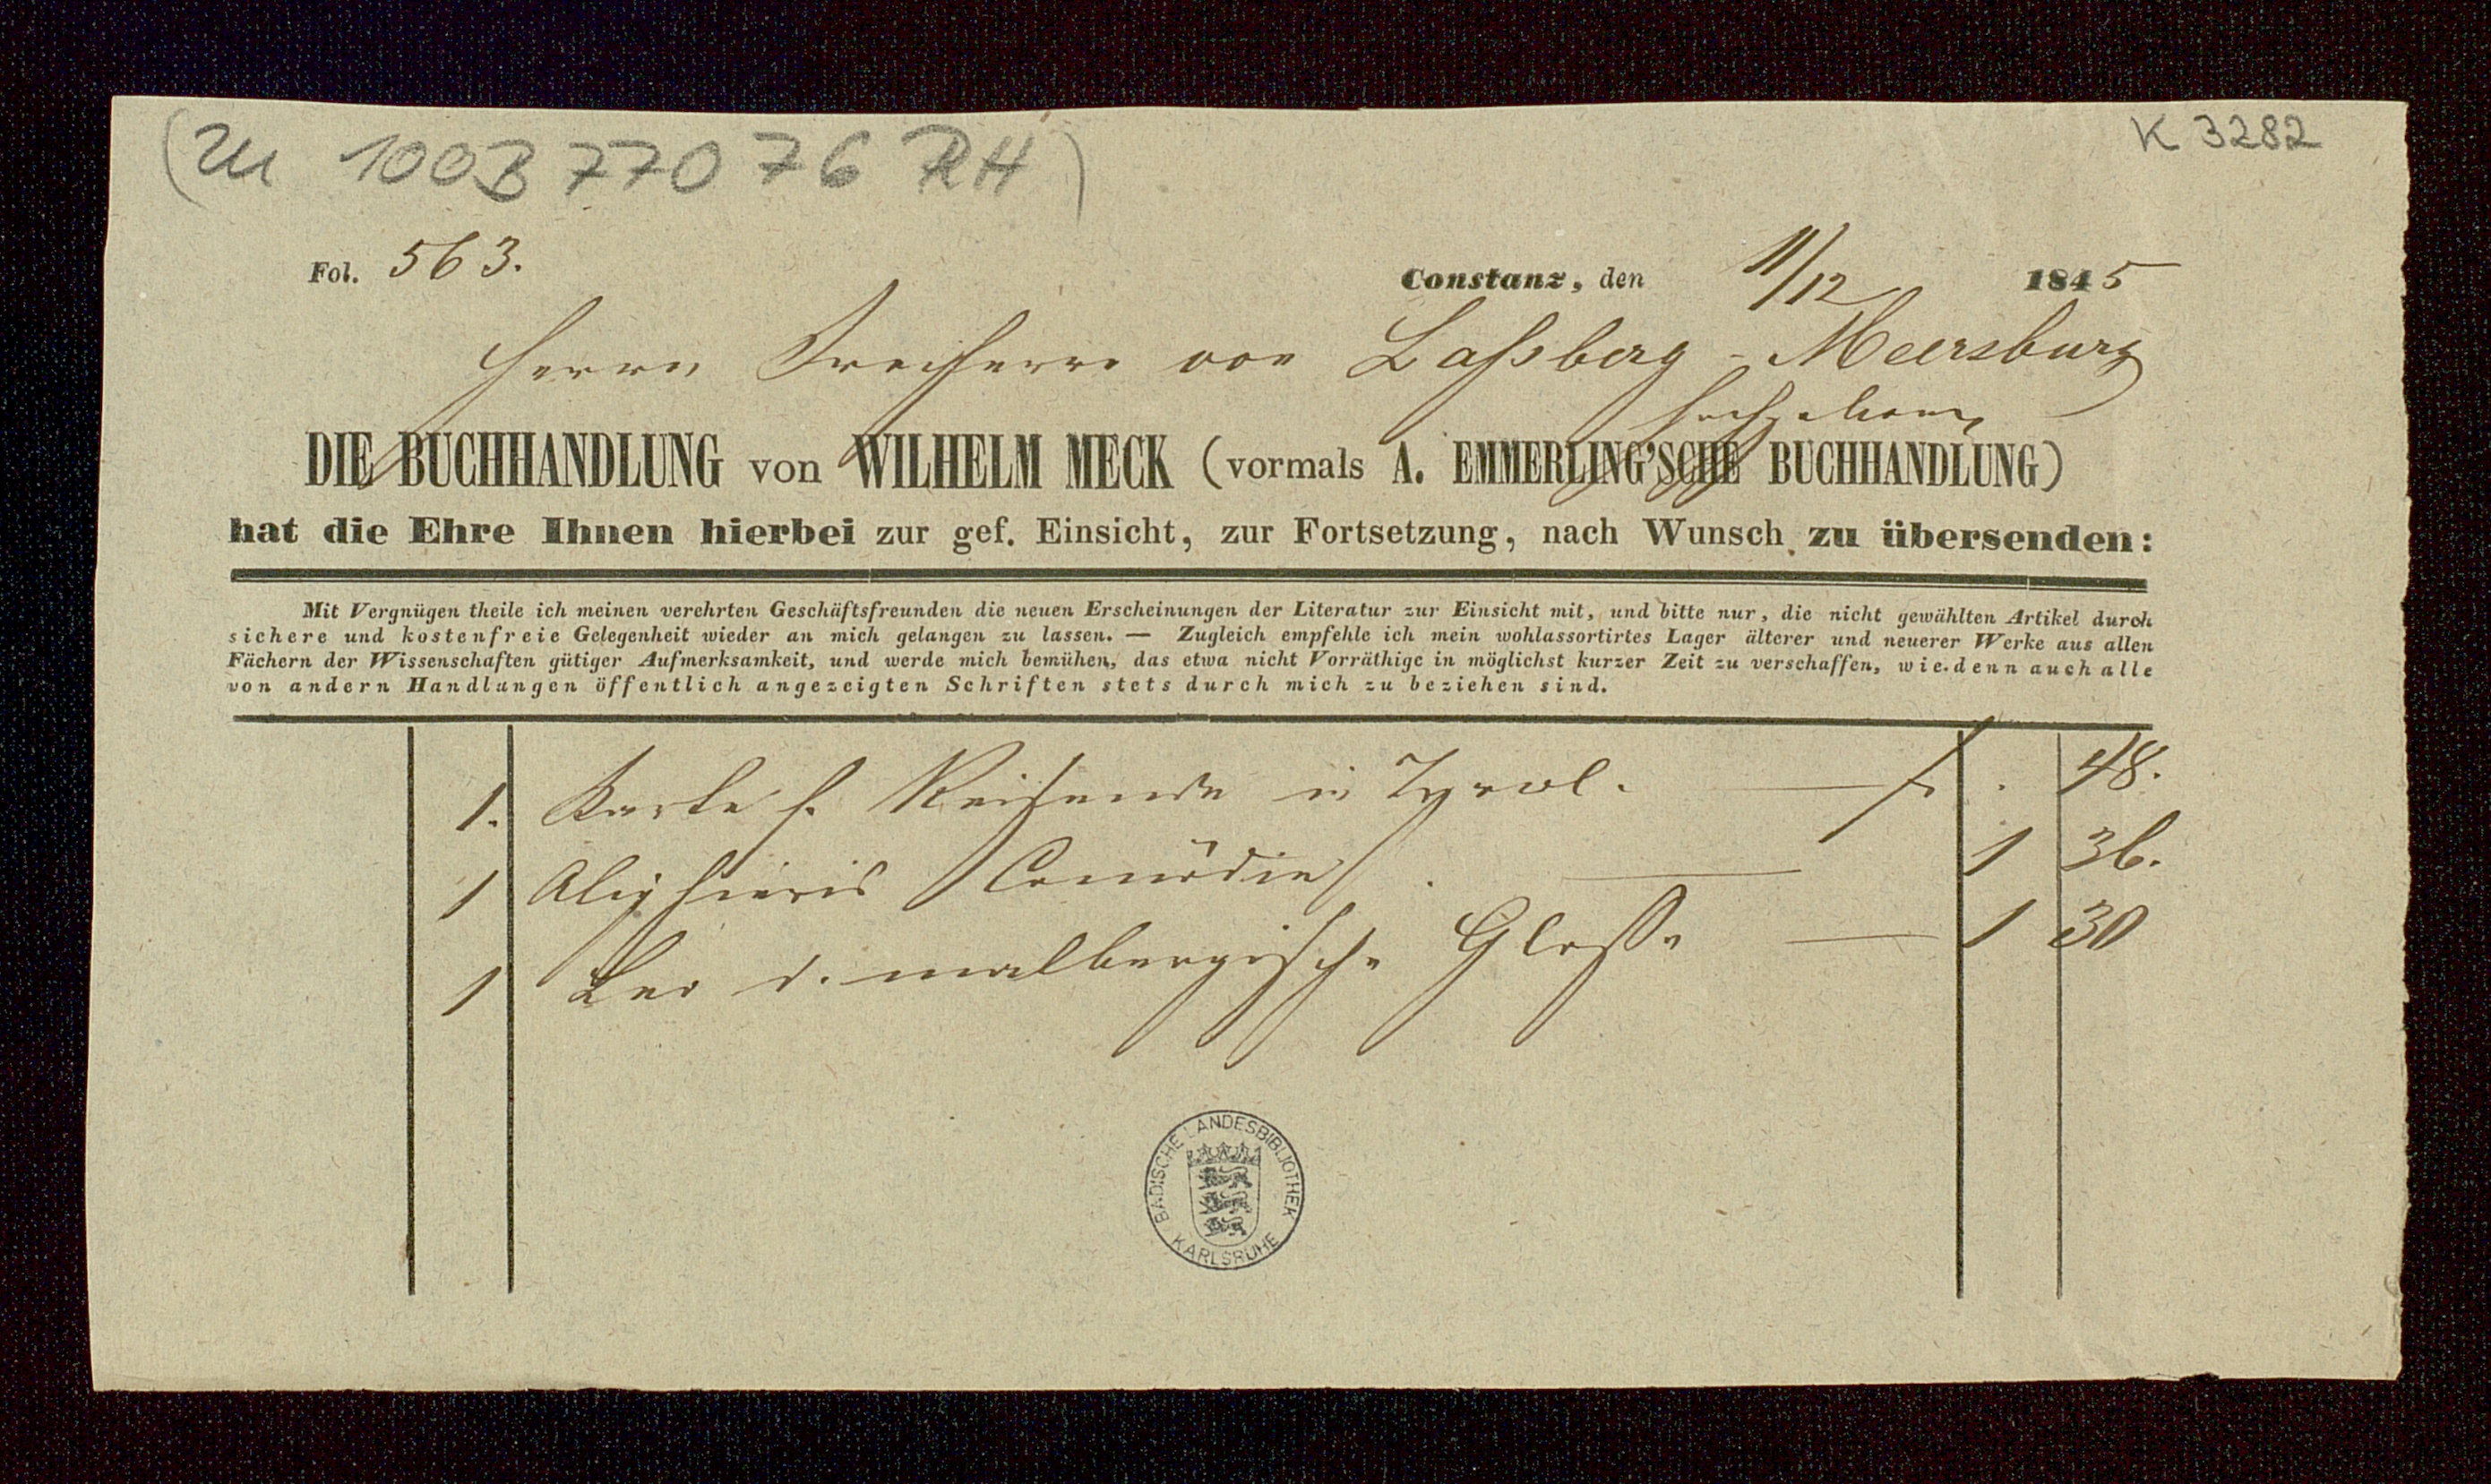 (Zu 100B 77076 RH)
K 3282
Fol. 563.
Constanz, den 11/12 1845
Herrn Freiherrn von Laßberg - Meersburg
Hochgeboren
DIE BUCHHANDLUNG von WILHELM MECK (vormals A. EMMERLING'SCHE BUCHHANDLUNG)
hat die Ehre Ihnen hierbei zur gef. Einsicht, zur Fortsetzung, nach Wunsch zu übersenden:
Mit Vergnügen theile ich meinen verehrten Geschäftsfreunden die neuen Erscheinungen der Literatur zur Einsicht mit, und bitte nur, die nicht gewählten Artikel durch
sichere und kostenfreie Gelegenheit wieder an mich gelangen zu lassen. — Zugleich empfehle ich mein wohlassortirtes Lager älterer und neuerer Werke aus allen
Fächern der Wissenschaften gütiger Aufmerksamkeit, und werde mich bemühen, das etwa nicht Vorräthige in möglichst kurzer Zeit zu verschaffen, wie denn auch alle
von andern Handlungen öffentlich angezeigten Schriften stets durch mich zu beziehen sind.
1. Karte f. Reisende in Tyrol. — f . 48.
1 Alighieris Comödie . — 1 36.
1 Leo d. malbergische Glosse — 1 30
BADISCHE LANDESBIBLIOTHEK
KARLSRUHE